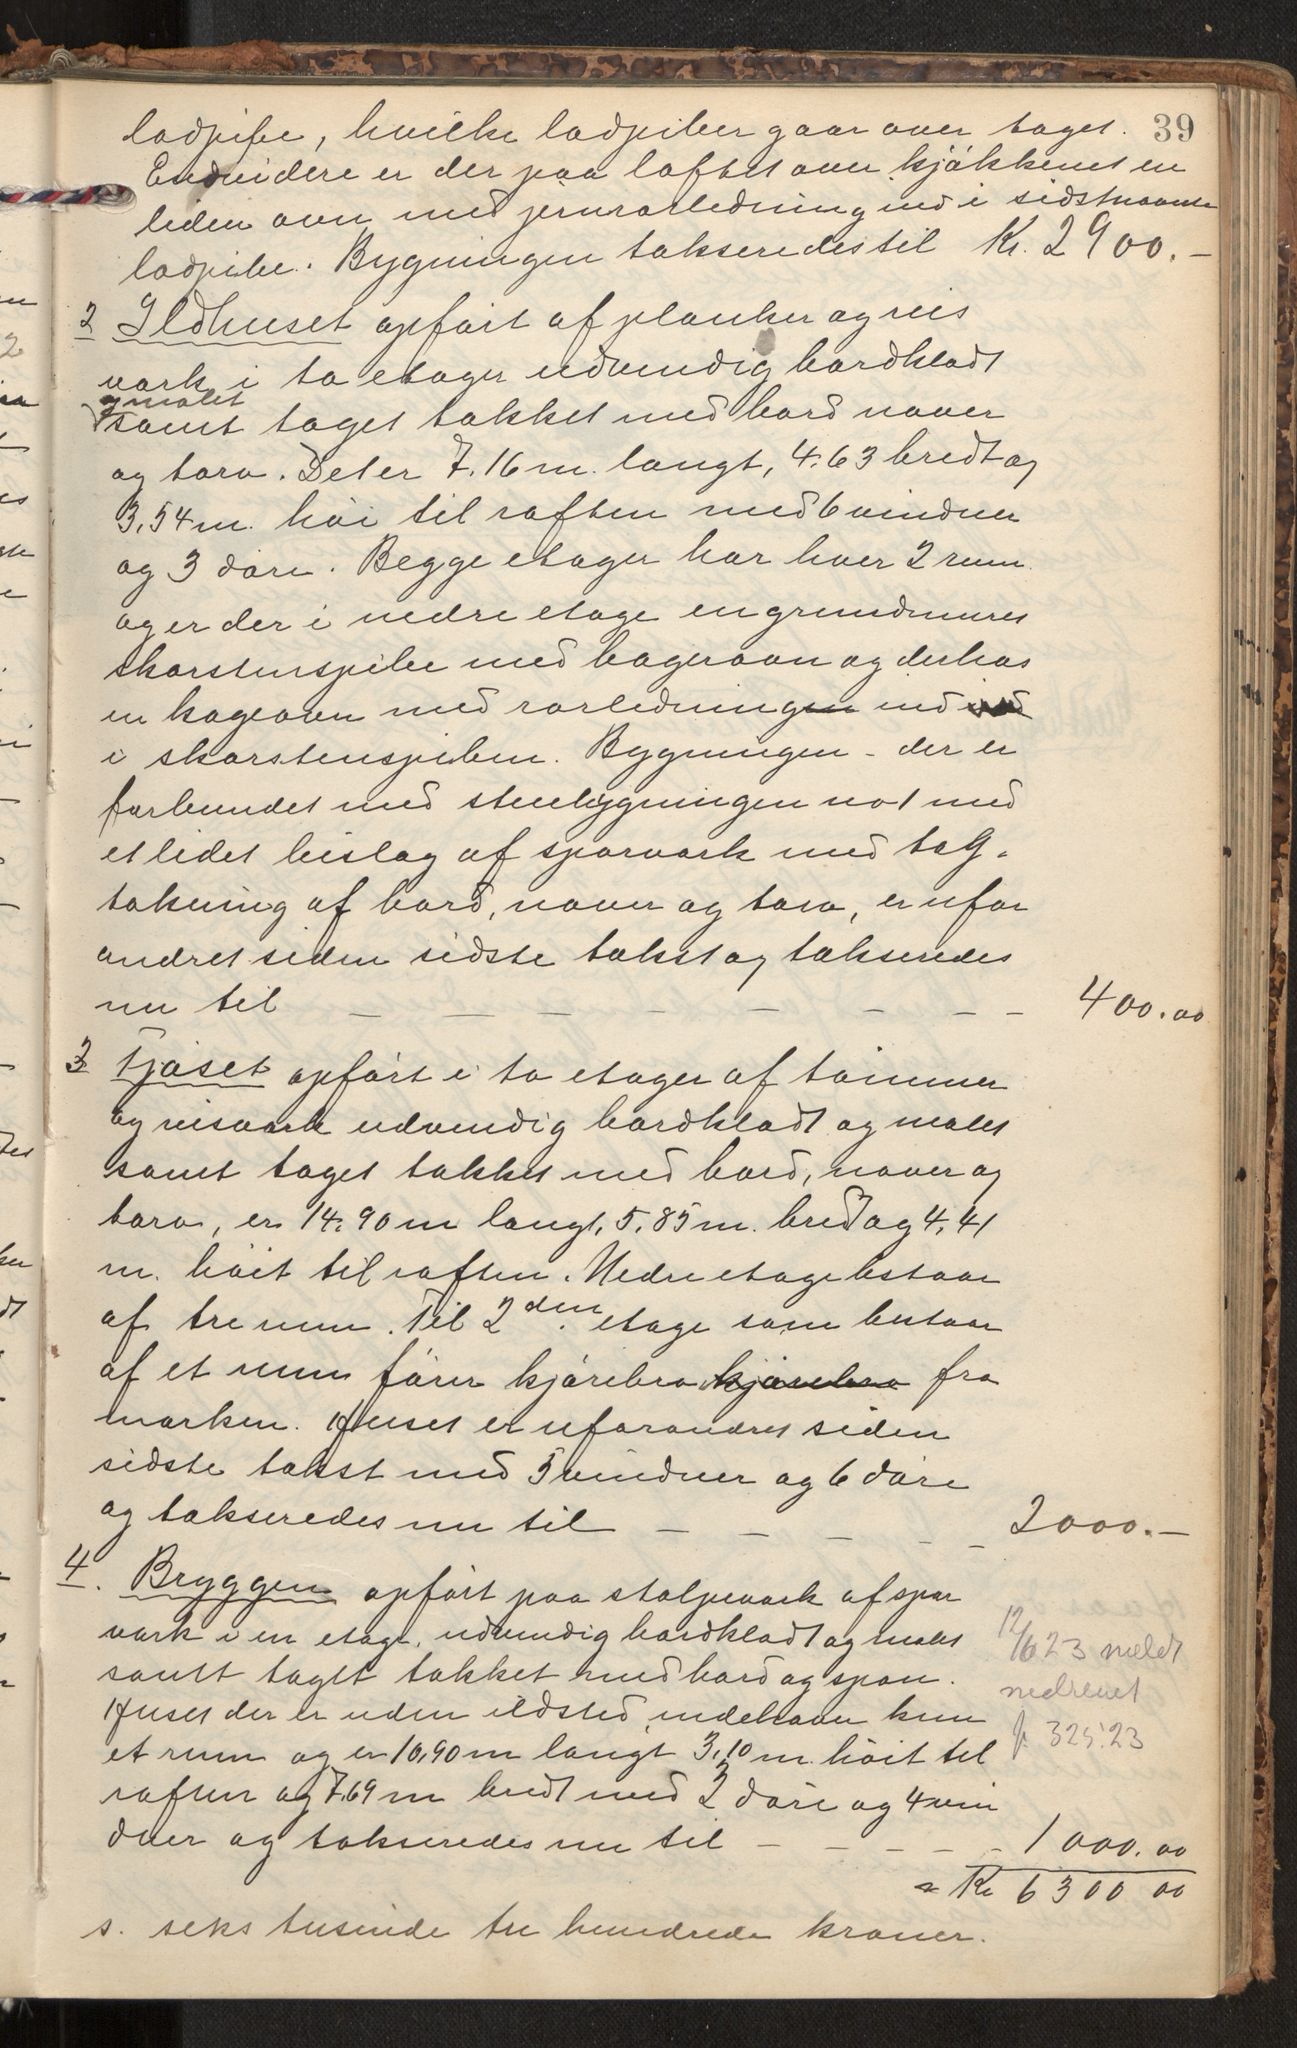 39
lodpibe, hvilke lodpiber gaar over taget.
Endvidere er der paa loftet over kjøkkenet en
liden ovn med jernrørledning ind i sidstnævnte
lodpibe. Bygningen takseredes til Kr. 2900.-
2 Ildhuset opført af planker og reis
værk i to etager udvendig bordklædt
og malet
samt taget tækket med bord næver
og torv. Det er 7.16 m. langt, 4.63 bredt og
3,54 m. høi til raften med 6 vinduer
og 3 døre. Begge etager har hver 2 rum
og er der i nedre etage en grundmuret
skorstenspibe med bagerovn og derhos
en kogeovn med rørledningen ind
i skorstenspiben. Bygningen - der er
forbundet med stuebygningen no 1 med
et lidet bislag af sparværk med tag-
tækning af bord, næver og torv, er ufor
andret siden sidste takst og takseredes
nu til — — — — — — — — 400.00
3 Fjøset opført i to etager af tømmer
og reisværk udvendig bordklædt og malet
samt taget tækket med bord, næver og
torv, er 14.90 m langt, 5.85 m. bredt og 4,41
m. høit til raften. Nedre etage bestaar
af tre rum. Til 2den etage som bestaar
af et rum fører kjørebro kjørebro fra
marken. Huset er uforandret siden
sidste takst med 5 vinduer og 6 døre
og takseredes nu til — — — — — 2000.—
4. Bryggen opført paa stolpeværk af spar
værk i en etage, udvendig bordklædt og malet
samt taget tækket med bord og spon.
Huset der er uden ildsted, indehaver kun
et rum og er 10,90 m langt 3,10 m. høit til
raften og 7.69 m bredt med 2 døre og 4 vin
duer og takseredes nu til — — — — — 1000.00
12/6 23 meldt
nedrevet
j. 325.23
= Kr 6300 00
s. seks tusinde tre hundrede kroner.